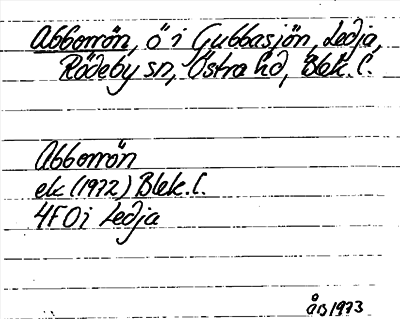 Abborrön, ö i Gubbasjön, Ledja,
Rödeby sn, Östra hd, Blek. l.
Abborrön
ek (1972) Blek. l.
4F0i Ledja
ÅB 1973